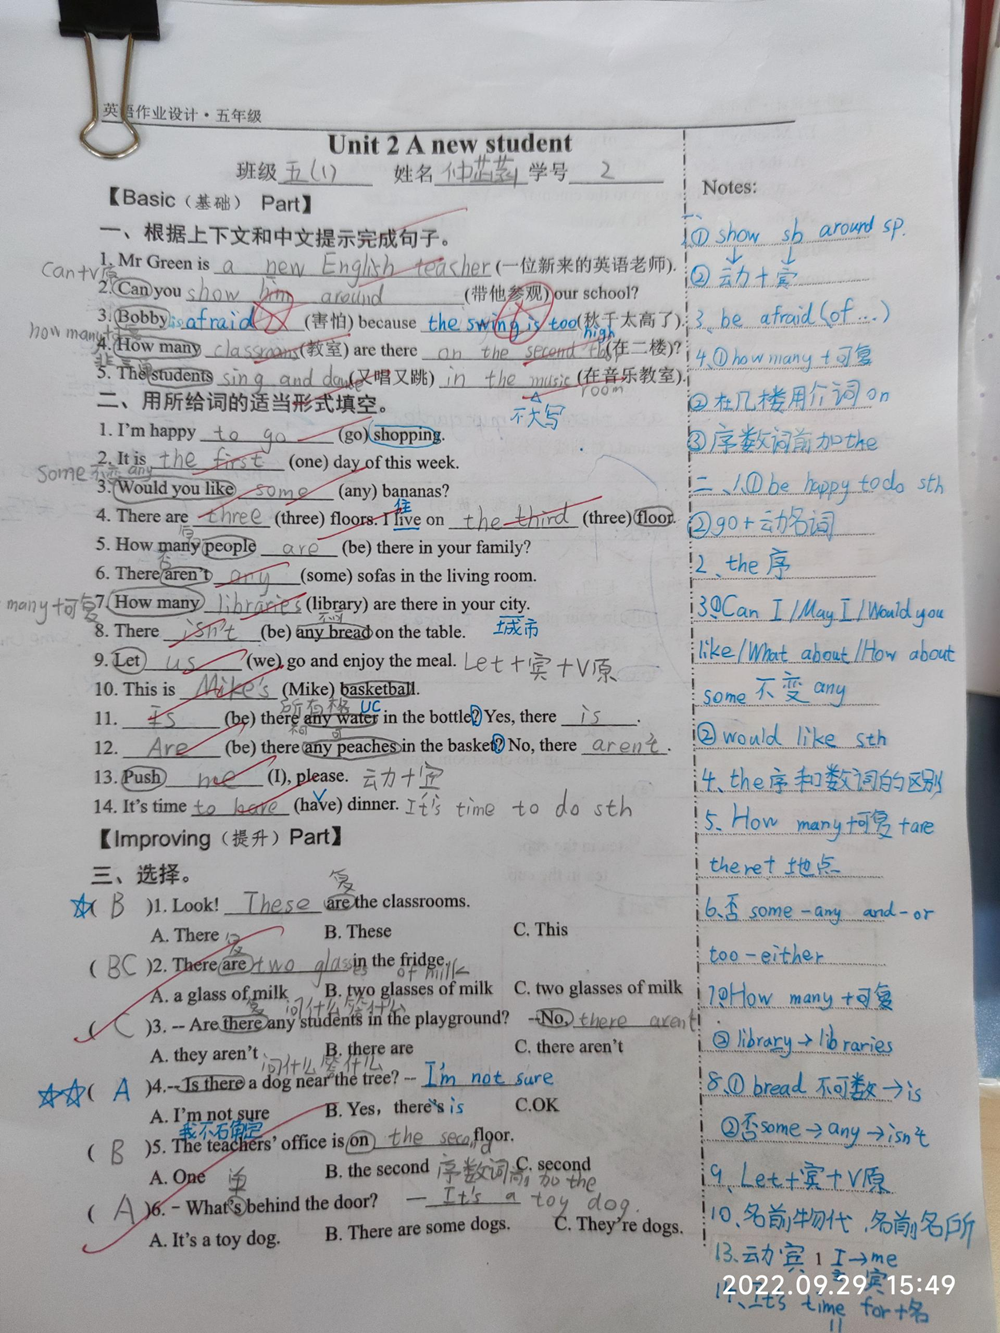 英语作业设计·五年级
Unit 2 A new student
班级 五(1) 姓名 学号 2
【Basic（基础） Part】
一、根据上下文和中文提示完成句子。
1. Mr Green is a new English teacher (一位新来的英语老师).
can+v原
2. Can you show him around (带他参观) our school?
3. Bobby is afraid (害怕) because the swing is too high (秋千太高了).
how many+可复
4. How many classrooms (教室) are there on the second (在二楼)?
5. The students sing and dance (又唱又跳) in the music room (在音乐教室).
不大写
二、用所给词的适当形式填空。
1. I'm happy to go (go) shopping.
2. It is the first (one) day of this week.
some 不变 any
3. Would you like some (any) bananas?
4. There are three (three) floors. I live on the third (three) floor.
住
5. How many people are (be) there in your family?
否
6. There aren't any (some) sofas in the living room.
many+可复
7. How many libraries (library) are there in your city.
城市
8. There isn't (be) any bread on the table.
不可
9. Let us (we) go and enjoy the meal. Let+宾+V原
10. This is Mike's (Mike) basketball.
所有格 UC
11. Is (be) there any water in the bottle? Yes, there is.
12. Are (be) there any peaches in the basket? No, there aren't.
13. Push me (I), please. 动+宾
14. It's time to have (have) dinner. It's time to do sth
【Improving（提升） Part】
三、选择。
复
( B )1. Look! These are the classrooms.
A. There B. These C. This
复
( BC )2. There are two glasses of milk in the fridge.
A. a glass of milk B. two glasses of milk C. two glasses of milk
复 问什么答什么
( C )3. -- Are there any students in the playground? --No, there aren't
A. they aren't B. there are C. there aren't
问什么答什么
( A )4.--Is there a dog near the tree? -- I'm not sure
A. I'm not sure B. Yes, there's is C.OK
我不确定
( B )5. The teachers' office is on the second floor.
A. One B. the second C. second
序数词前加the
单
( A )6. - What's behind the door? — It's a toy dog.
A. It's a toy dog. B. There are some dogs. C. They're dogs.
Notes:
1.① show sb around sp.
② 动+宾
3. be afraid (of ...)
4.① how many+可复
② 在几楼用介词on
③ 序数词前加the
二、1.① be happy to do sth
② go+动名词
2、the 序
3.① Can I/May I/Would you
like/What about/How about
some 不变 any
② would like sth
4、the序和数词的区别
5、How many+可复+are
there+地点
6、否 some-any and-or
too-either
7① How many+可复
② library→libraries
8.① bread 不可数→is
②否some→any→isn't
9、Let+宾+V原
10、名前物代、名前名所
13、动宾 I→me
主 宾
14、It's time for+名
1
2022.09.29 15:49